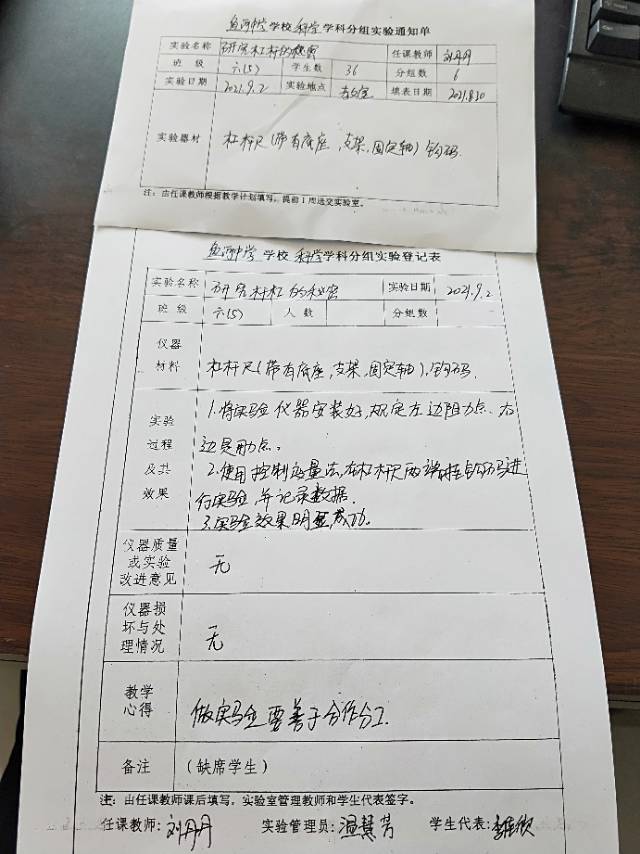 鱼河中学 学校 科学 学科分组实验通知单
实验名称 研究杠杆的秘密 任课教师 刘丹丹
班 级 六(5) 学生数 36 分组数 6
实验日期 2021.9.2 实验地点 填表日期 2021.8.30
实验器材 杠杆尺(带有底座,支架,固定轴)钩码.
注:由任课教师根据教学计划填写,提前1周送交实验室。
鱼河中学 学校 科学 学科分组实验登记表
实验名称 研究杠杆的秘密 实验日期 2021.9.2
班 级 六(5) 人 数 分组数
仪器
材料 杠杆尺(带有底座,支架,固定轴),钩码.
实验
过程
及其
效果
1.将实验仪器安装好,规定左边阻力点.右
边是用力点。
2.使用控制变量法,在杠杆尺两端挂钩码进
行实验,并记录数据.
3.实验效果明显,成功。
仪器质量
或实验
改进意见
无
仪器损
坏与处
理情况
无
教学
心得
做实验要善于合作分工.
备注 (缺席学生)
注:由任课教师课后填写,实验室管理教师和学生代表签字。
任课教师:刘丹丹 实验管理员:温慧芳 学生代表: